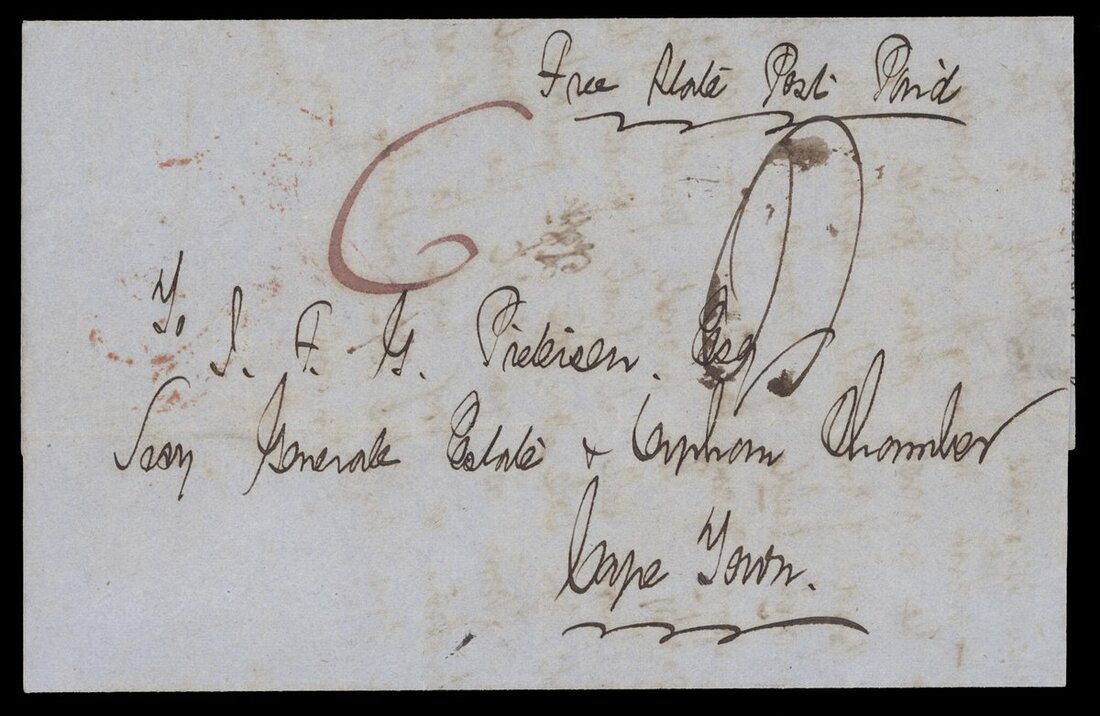 Free State Post Paid
6
To
J. F. G. Pietersen. Esq
Secy General Estate & Orphan Chamber
Cape Town.